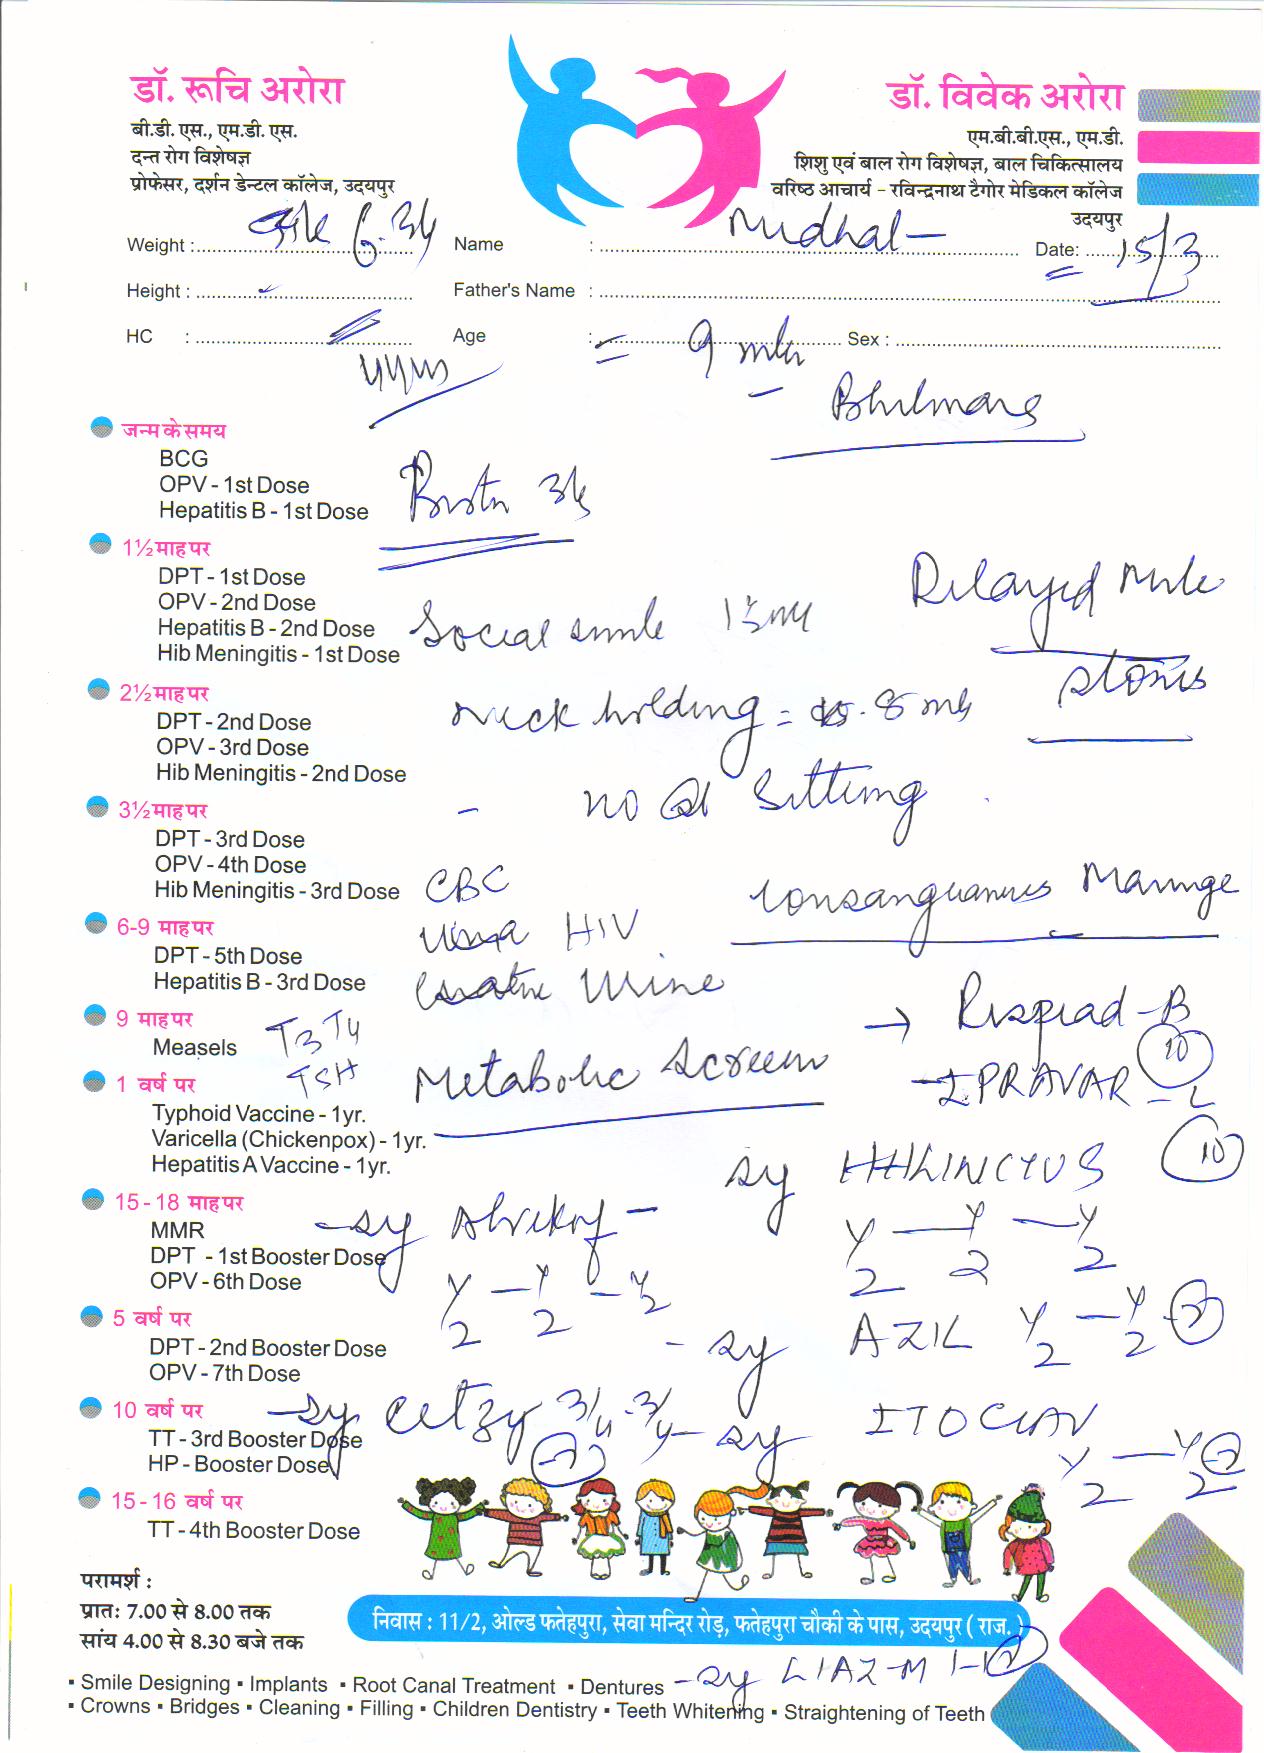 डॉ. रूचि अरोरा
बी.डी. एस., एम.डी. एस.
दन्त रोग विशेषज्ञ
प्रोफेसर, दर्शन डेन्टल कॉलेज, उदयपुर
डॉ. विवेक अरोरा
एम.बी.बी.एस., एम.डी.
शिशु एवं बाल रोग विशेषज्ञ, बाल चिकित्सालय
वरिष्ठ आचार्य - रविन्द्रनाथ टैगोर मेडिकल कॉलेज
उदयपुर
Weight : 6.3kg Name : Date: 15/3
Height : Father's Name :
HC : Age : = 9 mth Sex :
जन्म के समय
BCG
OPV - 1st Dose
Hepatitis B - 1st Dose
1½ माह पर
DPT - 1st Dose
OPV - 2nd Dose
Hepatitis B - 2nd Dose
Hib Meningitis - 1st Dose
Social smile
Delayed mile
stones
2½ माह पर
DPT - 2nd Dose
OPV - 3rd Dose
Hib Meningitis - 2nd Dose
neck holding = 8 mth
- no sitting
3½ माह पर
DPT - 3rd Dose
OPV - 4th Dose
Hib Meningitis - 3rd Dose CBC
Consanguanus Marriage
6-9 माह पर
DPT - 5th Dose
Hepatitis B - 3rd Dose
HIV
Urine
9 माह पर
Measels T3 T4
TSH
Metabolic Screen
→ Respiad - B
IPRAVAR - L 10
1 वर्ष पर
Typhoid Vaccine - 1yr.
Varicella (Chickenpox) - 1yr.
Hepatitis A Vaccine - 1yr.
sy LINCTUS 10
Y/2 — Y/2 — Y/2
15 - 18 माह पर
MMR
DPT - 1st Booster Dose
OPV - 6th Dose
- sy
Y/2 — Y/2 — Y/2
5 वर्ष पर
DPT - 2nd Booster Dose
OPV - 7th Dose
- sy AZIL Y/2 — Y/2
10 वर्ष पर
TT - 3rd Booster Dose
HP - Booster Dose
- sy Cetzy 3/4 - 3/4
- sy ITOCLAV
Y/2 — Y/2
15 - 16 वर्ष पर
TT - 4th Booster Dose
परामर्श :
प्रातः 7.00 से 8.00 तक
सांय 4.00 से 8.30 बजे तक
निवास : 11/2, ओल्ड फतेहपुरा, सेवा मन्दिर रोड़, फतेहपुरा चौकी के पास, उदयपुर ( राज. )
- sy LIAZ-M
▪ Smile Designing ▪ Implants ▪ Root Canal Treatment ▪ Dentures
▪ Crowns ▪ Bridges ▪ Cleaning ▪ Filling ▪ Children Dentistry ▪ Teeth Whitening ▪ Straightening of Teeth